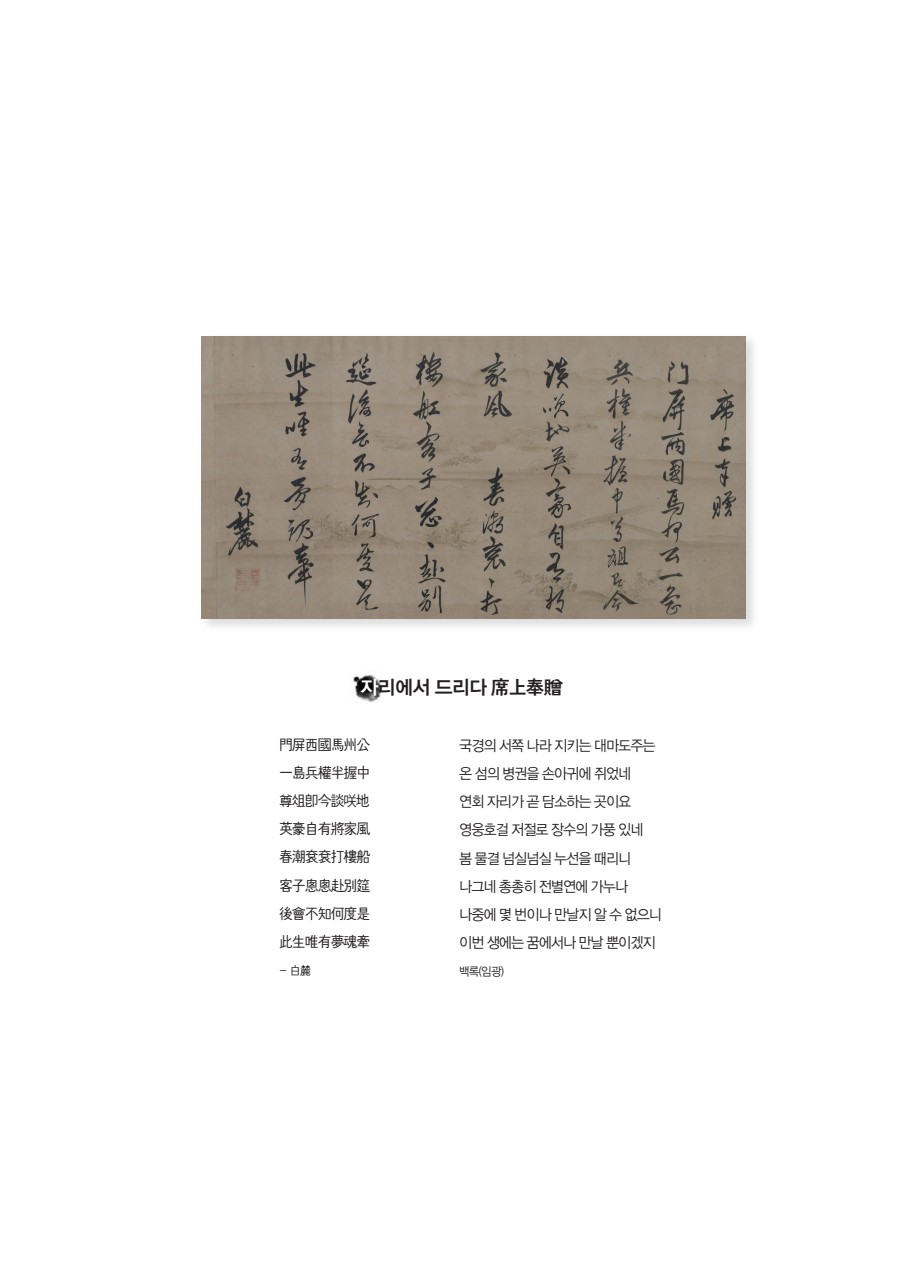 席上奉贈
門屏西國馬州公一島
兵權半握中尊俎即今
談咲地英豪自有將
家風 春潮衮〻打
樓舡客子忽〻赴別
筵後會不知何度是
此生唯有夢魂牽
白麓
자리에서 드리다 席上奉贈
門屏西國馬州公
一島兵權半握中
尊俎卽今談咲地
英豪自有將家風
春潮袞袞打樓船
客子悤悤赴別筵
後會不知何度是
此生唯有夢魂牽
– 白麓
국경의 서쪽 나라 지키는 대마도주는
온 섬의 병권을 손아귀에 쥐었네
연회 자리가 곧 담소하는 곳이요
영웅호걸 저절로 장수의 가풍 있네
봄 물결 넘실넘실 누선을 때리니
나그네 총총히 전별연에 가누나
나중에 몇 번이나 만날지 알 수 없으니
이번 생에는 꿈에서나 만날 뿐이겠지
백록(임광)